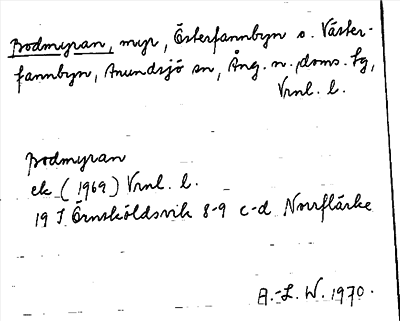 Bodmyran, myr, Österfannbyn o. Väster-
fannbyn, Anundsjö sn, Ång. n. doms. lg,
Vrnl. l.
Bodmyran
ek (1969) Vrnl. l.
19 I Örnsköldsvik 8-9 c-d Norrflärke
A.-L. W. 1970.